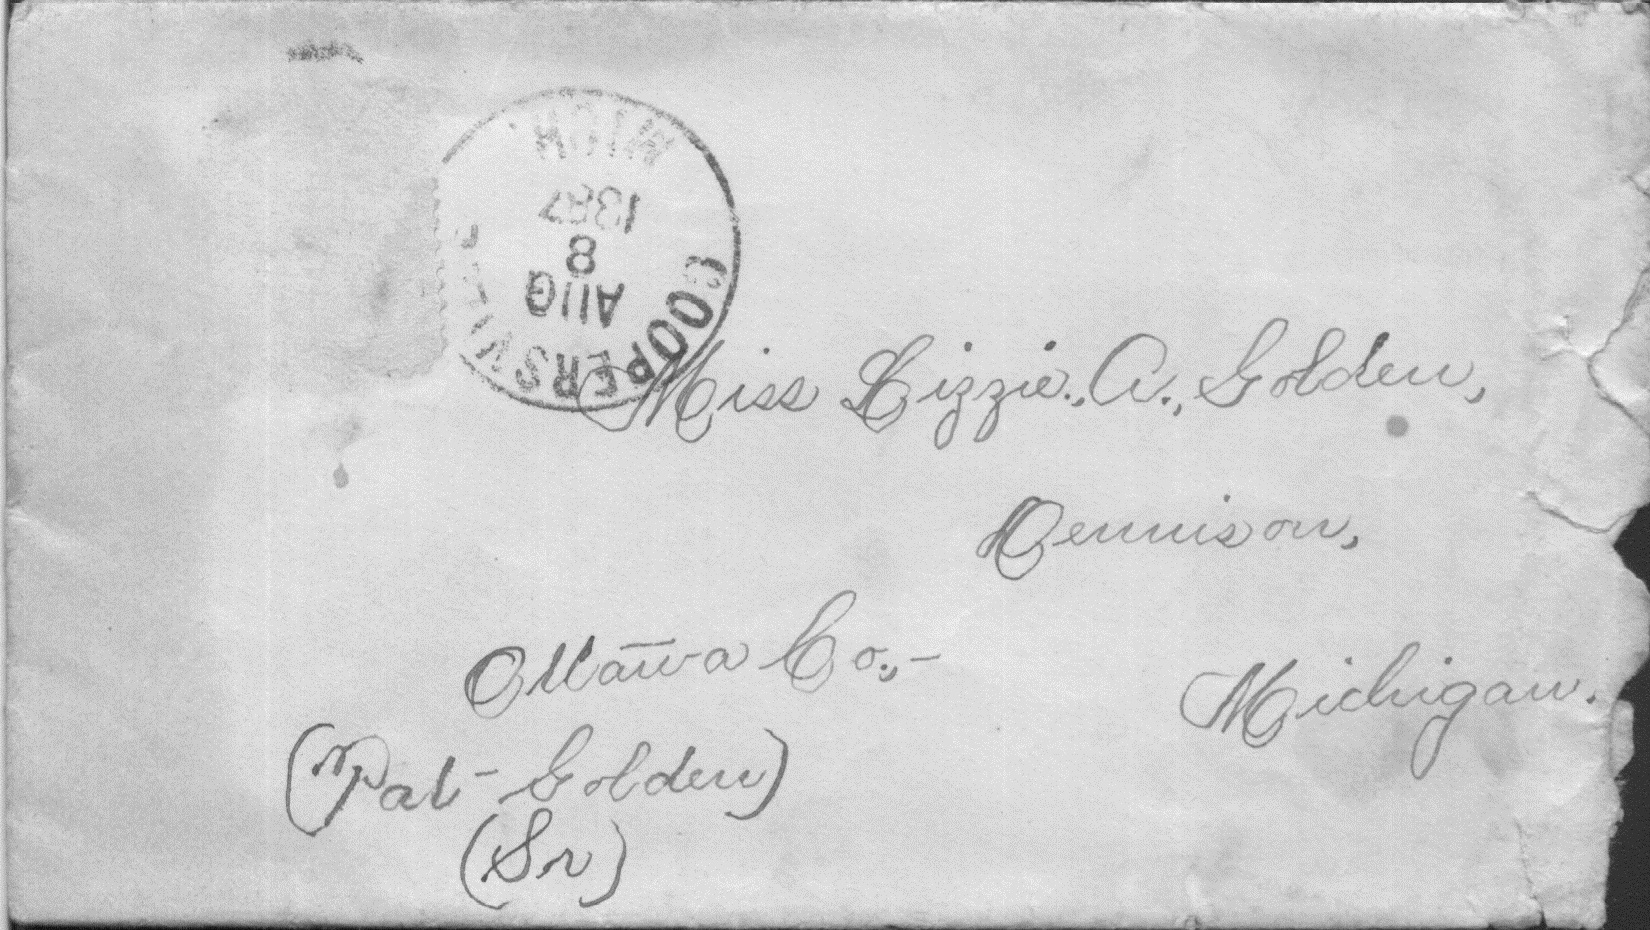 COOPERSVILLE
MICH.
1887
8
AUG
Miss Lizzie., A., Golden,
Dennison,
Ottawa Co.,-
Michigan.
(Pat - Golden)
(Sr)